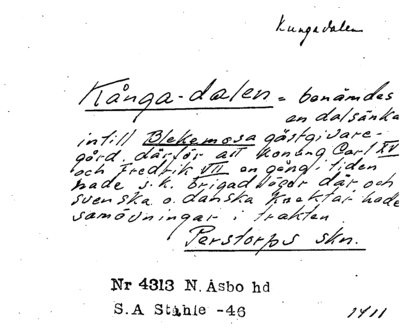 Kungadalen
Kånga-dalen = benämdes
en dalsänka
intill Blekemosa gästgivare-
gård, därför att konung Carl XV
och Fredrik VII en gång i tiden
hade s.k. brigadlägor där, och
svenska o. danska knektar hade
samövningar i trakten
Perstorps skn.
Nr 4313 N. Åsbo hd
S.A Ståhle -46